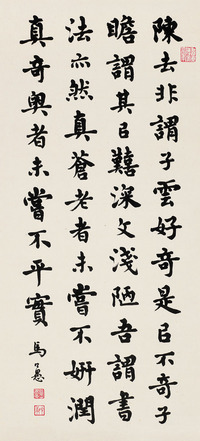 陳去非謂子雲好奇是㠯不奇子
瞻謂其㠯囏深文淺陋吾謂書
法亦然真蒼老者未嘗不妍潤
真奇奧者未嘗不平實
馬